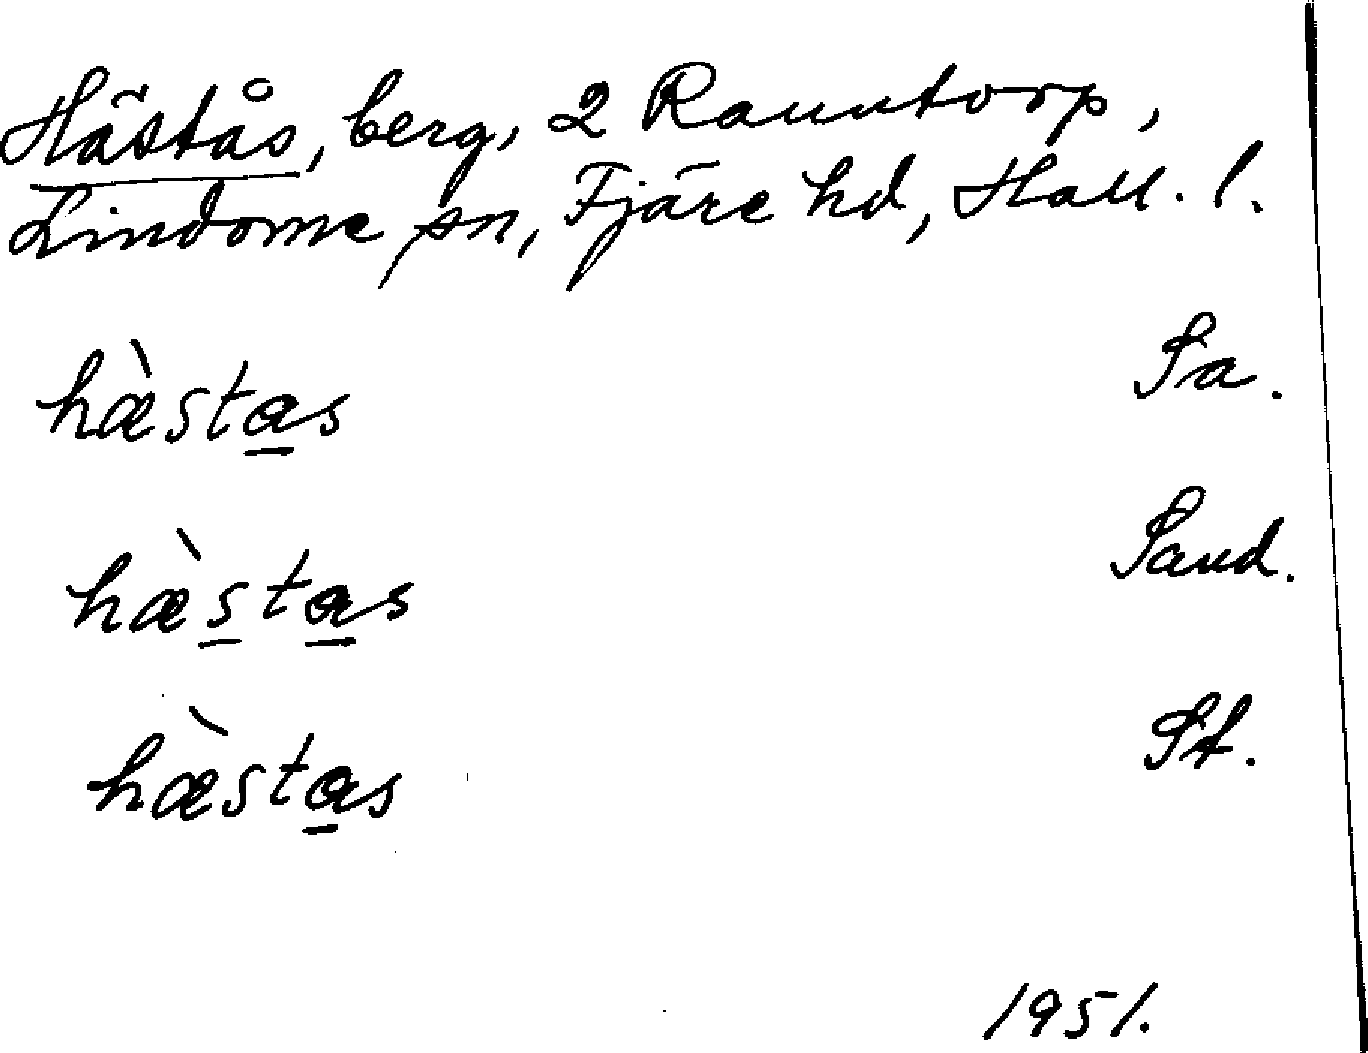 Hästås, berg, 2 Ramntorp,
Lindome sn, Fjäre hd, Hall. l.
hæ̀sta̲s Sa.
hæ̀s̲ta̲s Sand.
hæ̀sta̲s St.
1951.